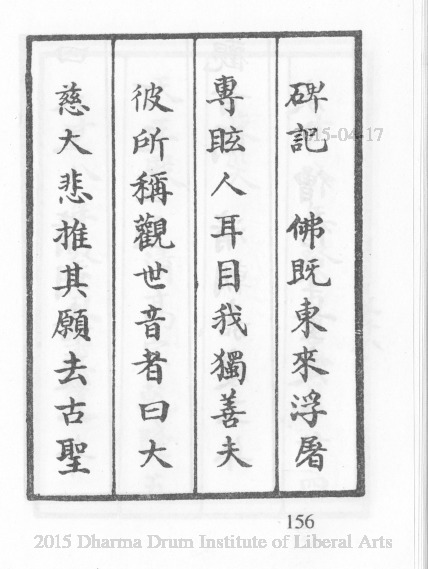 碑記　佛既東來浮屠
專眩人耳目我獨善夫
彼所稱觀世音者曰大
慈大悲推其願去古聖
2015-04-17
156
2015 Dharma Drum Institute of Liberal Arts